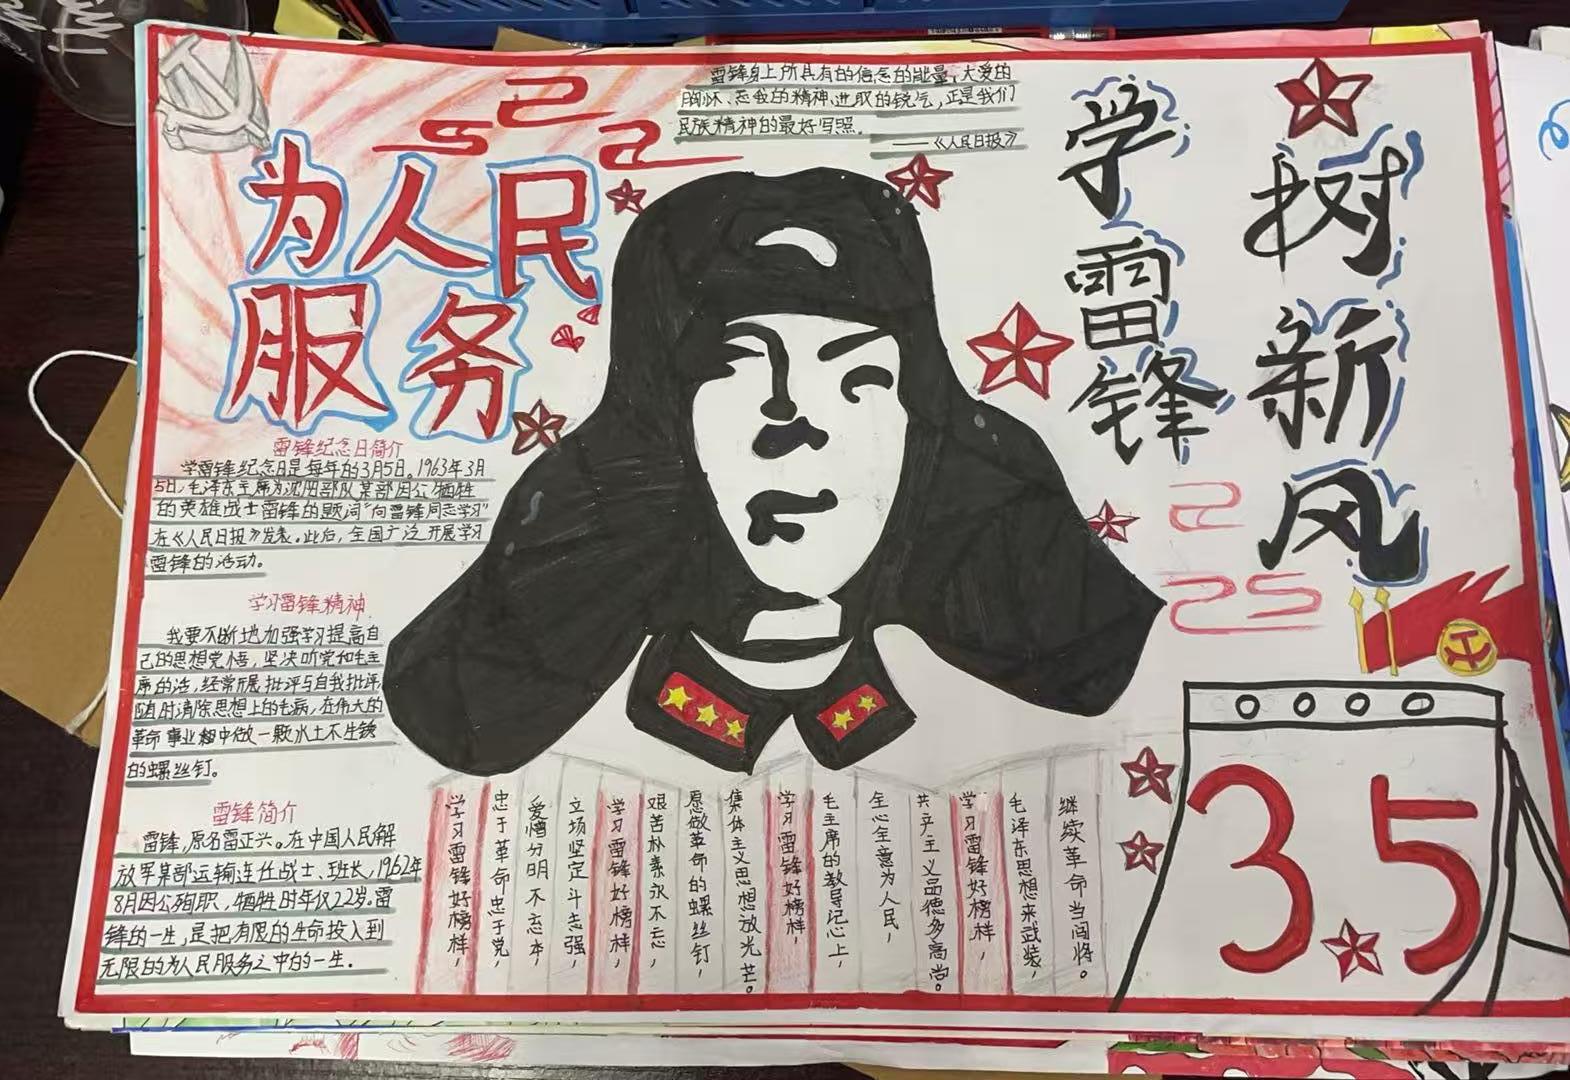 为人民
服务
雷锋身上所具有的信念的能量、大爱的
胸怀、忘我的精神、进取的锐气,正是我们
民族精神的最好写照。
——《人民日报》
学雷锋
树新风
雷锋纪念日简介
学雷锋纪念日是每年的3月5日。1963年3月
5日,毛泽东主席为沈阳部队某部因公牺牲
的英雄战士雷锋的题词“向雷锋同志学习”
在《人民日报》发表。此后,全国广泛开展学习
雷锋的活动。
学习雷锋精神
我要不断地加强学习提高自
己的思想觉悟,坚决听党和毛主
席的话,经常开展批评与自我批评,
随时清除思想上的毛病,在伟大的
革命事业中做一颗永土不生锈
的螺丝钉。
雷锋简介
雷锋,原名雷正兴。在中国人民解
放军某部运输连任战士、班长,1962年
8月因公殉职,牺牲时年仅22岁。雷
锋的一生,是把有限的生命投入到
无限的为人民服务之中的一生。
学习雷锋好榜样,
忠于革命忠于党,
爱憎分明不忘本,
立场坚定斗志强,
学习雷锋好榜样,
艰苦朴素永不忘,
愿做革命的螺丝钉,
集体主义思想放光芒。
学习雷锋好榜样,
毛主席的教导记心上,
全心全意为人民,
共产主义品德多高尚。
学习雷锋好榜样,
毛泽东思想来武装,
继续革命当闯将。
3.5